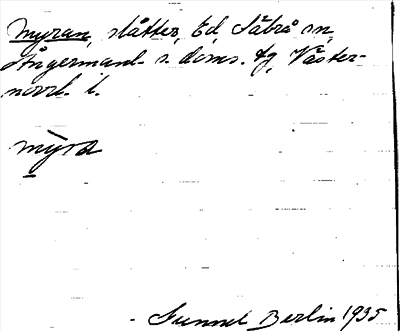 Myran, slåtter, Ed, Säbrå sn,
Ångermanl. s. doms. tg, Väster-
norrl. l.
myra
Gunnel Berlin 1935